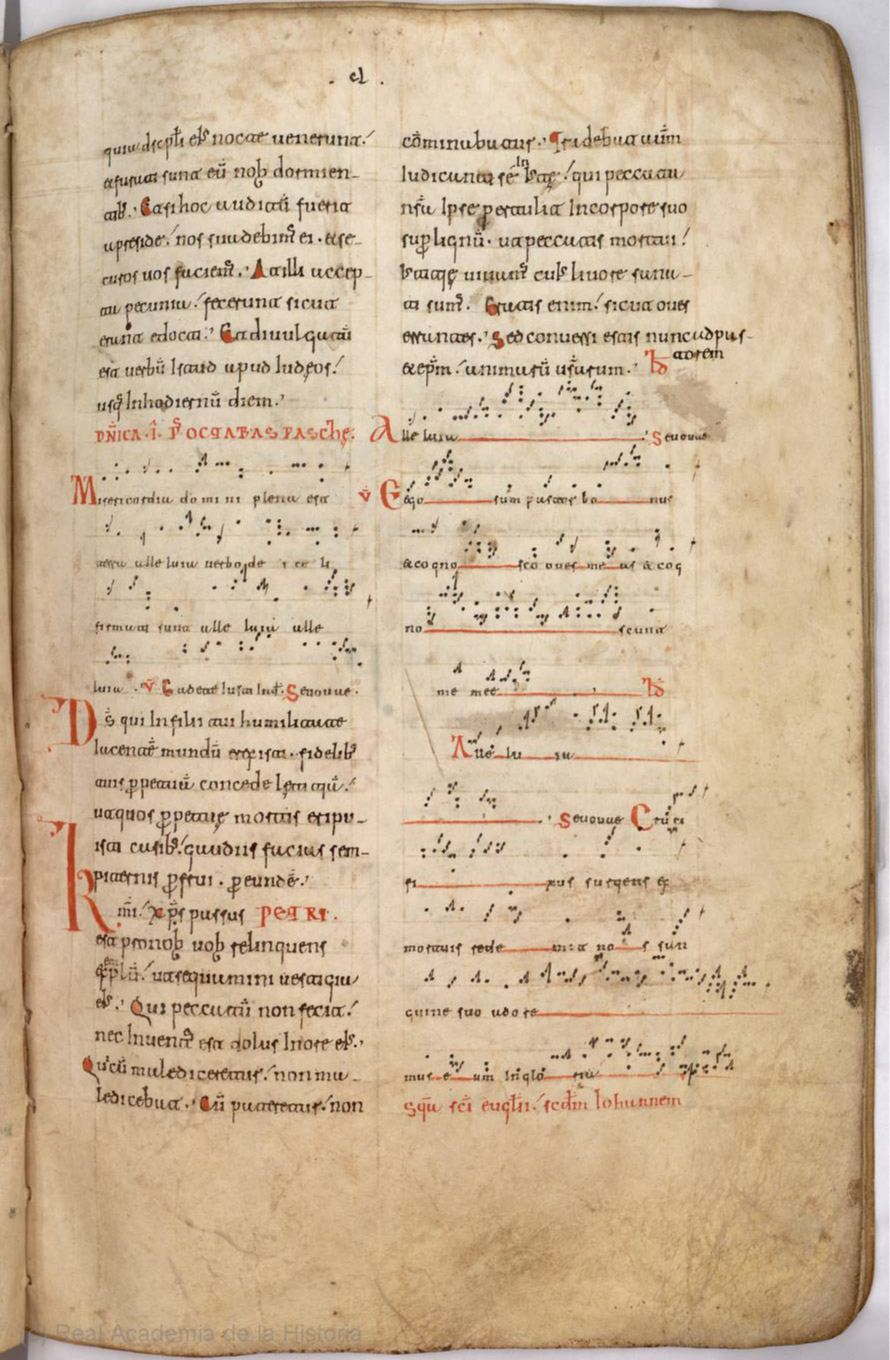 . cl .
quia discpłi eis nocte uenerunt
et furati sunt eū nob dormien-
tib. Et si hoc auditū fuerit
a preside nos suadebim̄ ei. et se-
curos uos faciem̄. At illi accep-
ta pecunia fecerunt sicut
erant edocti. Et diuulgatū
est uerbū Istud apud Iudeos
usq̄ In hodiernū diem.
DN̄ICA .I. P̄ OCTABAS PASChę.
Misericordia domini plena est
terra alleluia uerbo dei celi
firmati sunt alle luia alle
luia. V Gaudete Iusti In d. Seuouae.
Dś qui In filii tui humilitate
Iacentē mundū erexisti. fidelib
tuis ꝑpetuū concede lętitiā
ut quos ꝑpetuę mortis eripu-
isti casib. gaudiis facias sem-
piternis ꝑfrui. ꝑ eundē.
Km̄i. xp̄s passus PETRI.
est pro nob uob relinquens
exēplū. ut sequimini uestigia
eis. Qui peccatū non fecit
nec Inuent̄ est dolus In ore eis.
Qui cū malediceretur. non ma-
ledicebat. Cū pateretur non
cōminabatur. Tradebat autm̄
Iudicanti sē In Iuste. qui peccata
nr̄a Ipse ꝑtulit In corpore suo
suꝑ lignū. ut peccatis mortui
Iustitię uiuam̄ cuis liuore sana-
ti sum̄. Eratis enim sicut oues
errantes. Sed conuersi estis nunc ad pas-
torem
et epm̄ animarū uestrarum.
Alleluia Seuouae
V Ego sum pastor bonus
et cogno sco oues meas et cog
noscunt
me mee
Alle lu ia
Seuouae Cru ci
fi xus surgens ex
mortuis rede mit nos san
guine suo adore
mus eum In glo ria
Sq̄ū sc̄i eugłii. scdm̄ Iohannem
Real Academia de la Historia